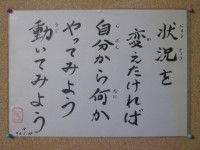 状況を
変えたければ
自分から何か
やってみよう
動いてみよう